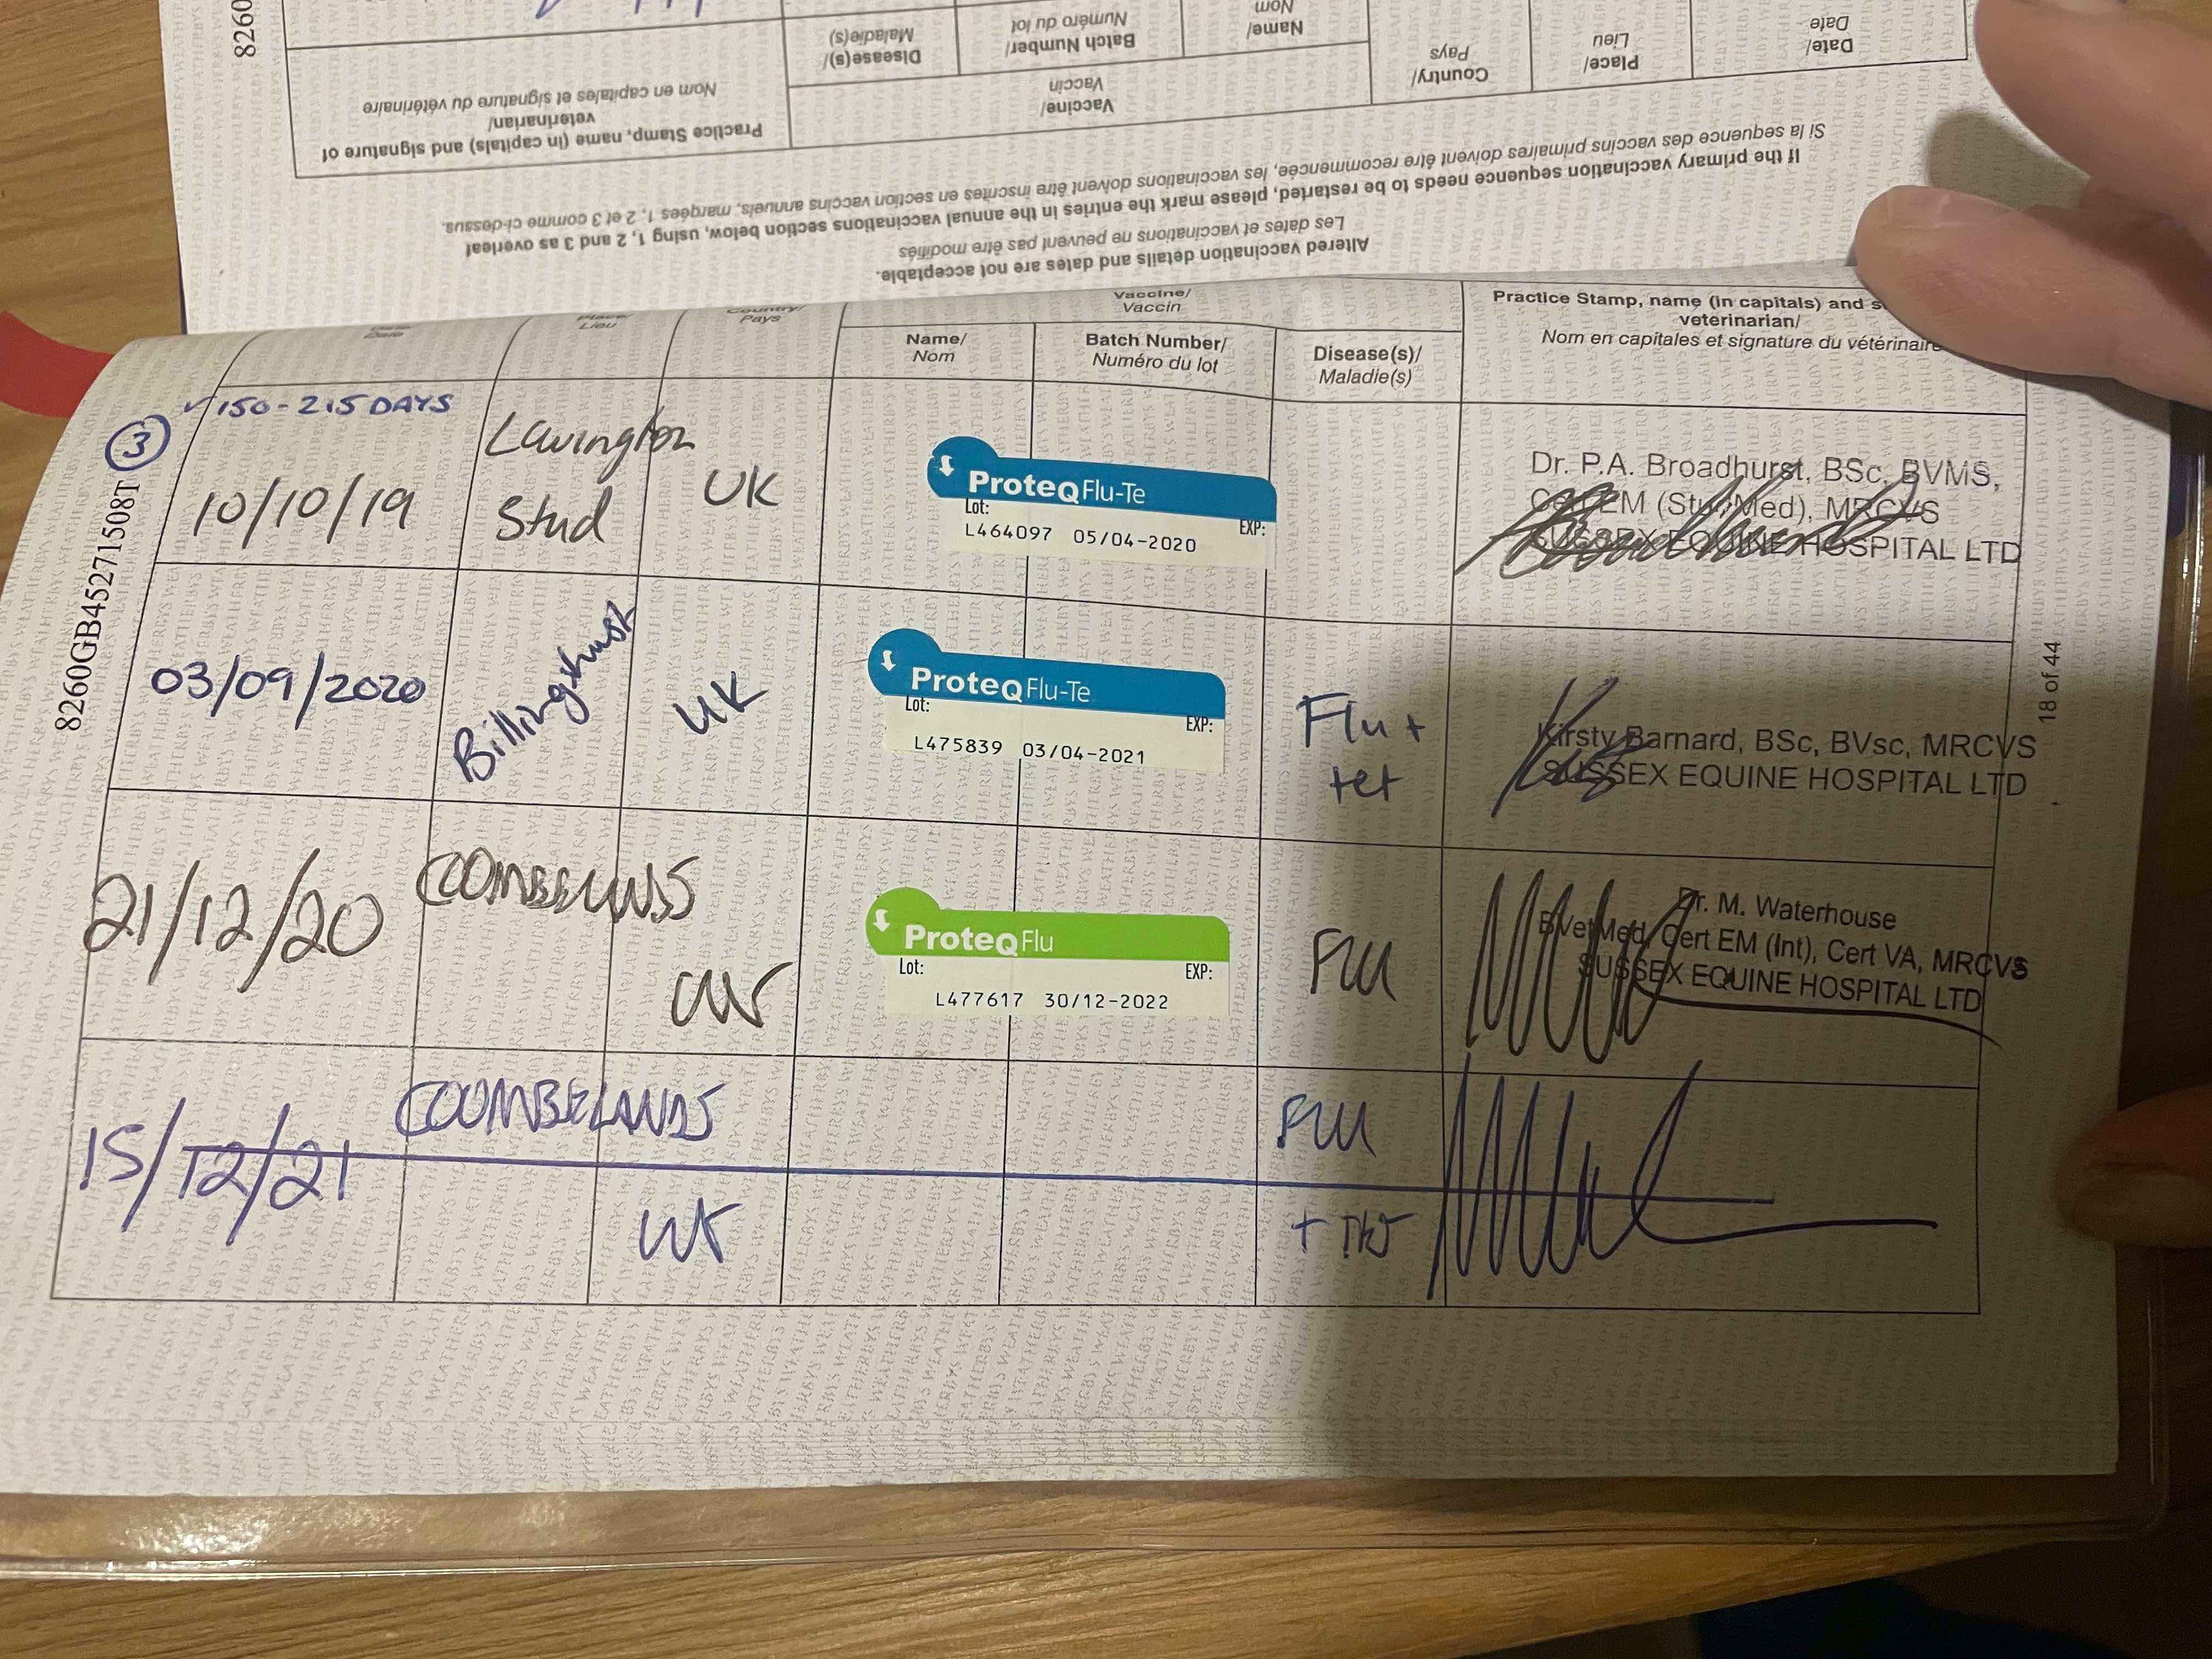 8260
Practice Stamp, name (in capitals) and signature of
veterinarian/
Nom en capitales et signature du vétérinaire
Vaccine/
Vaccin
Disease(s)/
Maladie(s)
Batch Number/
Numéro du lot
Name/
Nom
Country/
Pays
Place/
Lieu
Date/
Date
If the primary vaccination sequence needs to be restarted, please mark the entries in the annual vaccinations section below, using 1, 2 and 3 as overleaf
Si la sequence des vaccins primaires doivent être recommencée, les vaccinations doivent être inscrites en section vaccins annuels, marqées 1, 2 et 3 comme ci-dessus.
Altered vaccination details and dates are not acceptable.
Les dates et vaccinations ne peuvent pas être modifiés
Date
Place/
Lieu
Country/
Pays
Vaccine/
Vaccin
Name/
Nom
Batch Number/
Numéro du lot
Disease(s)/
Maladie(s)
Practice Stamp, name (in capitals) and s
veterinarian/
Nom en capitales et signature du vétérinaire
8260GB45271508T
3
✓150-215 DAYS
10/10/19
Lavington
Stud
UK
ProteqFlu-Te
Lot:
EXP:
L464097 05/04-2020
Dr. P.A. Broadhurst, BSc, BVMS,
CertEM (StudMed), MRCVS
SUSSEX EQUINE HOSPITAL LTD
03/09/2020
Billingshurst
UK
ProteqFlu-Te
Lot:
EXP:
L475839 03/04-2021
Flu +
tet
Kirsty Barnard, BSc, BVsc, MRCVS
SUSSEX EQUINE HOSPITAL LTD
21/12/20
COOMBELANDS
UK
ProteqFlu
Lot:
EXP:
L477617 30/12-2022
FLU
Dr. M. Waterhouse
BVetMed, Cert EM (Int), Cert VA, MRCVS
SUSSEX EQUINE HOSPITAL LTD
15/12/21
COOMBELANDS
UK
FLU
18 of 44
WEATHERBYS